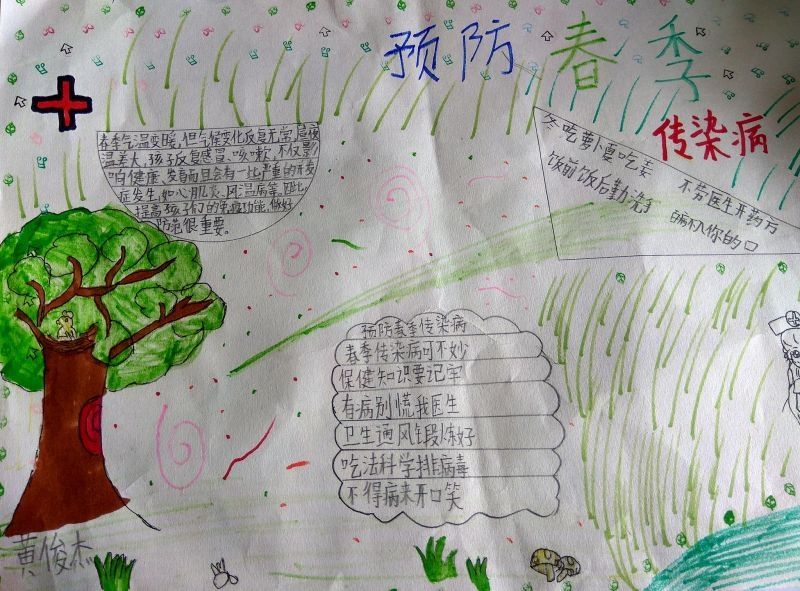 预防春季
传染病
春季气温变暖,但气候变化反复无常,昼夜
温差大,孩子反复感冒、咳嗽,不仅影
响健康、发育而且会有一些严重的并发
症发生,如心肌炎、风湿病等,因此,
提高孩子们的免疫功能,做好
防范很重要。
冬吃萝卜夏吃姜
不劳医生开药方
饭前饭后勤洗手
病入你的口
预防春季传染病
春季传染病可不妙
保健知识要记牢
有病别慌我医生
卫生通风锻炼好
吃法科学排病毒
不得病来开口笑
黄俊杰